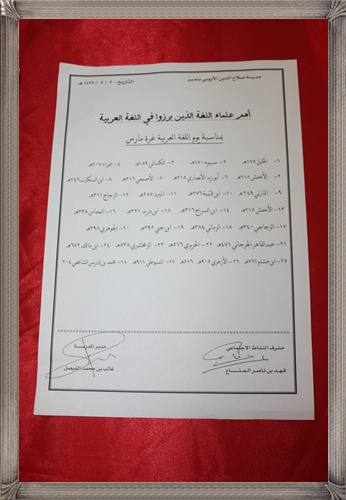 مدرسة صلاح الدين الأيوبي التاريخ: ٣ / ٥ / ١٤٣٥ هـ
أهم علماء اللغة الذين برزوا في اللغة العربية
بمناسبة يوم اللغة العربية غرة مارس
١- الخليل ١٧٥ ٢- سيبويه ١٨٠ ٣- الكسائي ١٨٩ ٤- الفراء ٢٠٧
٥- الأخفش ٢١٥ ٦- أبو زيد الأنصاري ٢١٥ ٧- الأصمعي ٢١٦ ٨- ابن السكيت ٢٤٤
٩- المازني ٢٤٩ ١٠- ابن قتيبة ٢٧٦ ١١- المبرد ٢٨٥ ١٢- الزجاج ٣١١
١٣- الأخفش ٣١٥ ١٤- ابن السراج ٣١٦ ١٥- ابن دريد ٣٢١ ١٦- النحاس ٣٣٨
١٧- الزجاجي ٣٤٠ ١٨- الرماني ٣٨٤ ١٩- ابن جني ٣٩٢ ٢٠- الجوهري ٣٩٨
٢١- عبدالقاهر الجرجاني ٤٧١ ٢٢- الحريري ٥١٦ ٢٣- الزمخشري ٥٣٨ ٢٤- ابن مالك ٦٧٢
٢٥- ابن هشام ٧٦١ ٢٦- الأزهري ٩٠٥ ٢٧- السيوطي ٩١١ ٢٨- محمد بن إدريس الشافعي ٢٠٤
مشرف النشاط الاجتماعي مدير المدرسة
فهد بن ناصر المناع غالب بن محمد